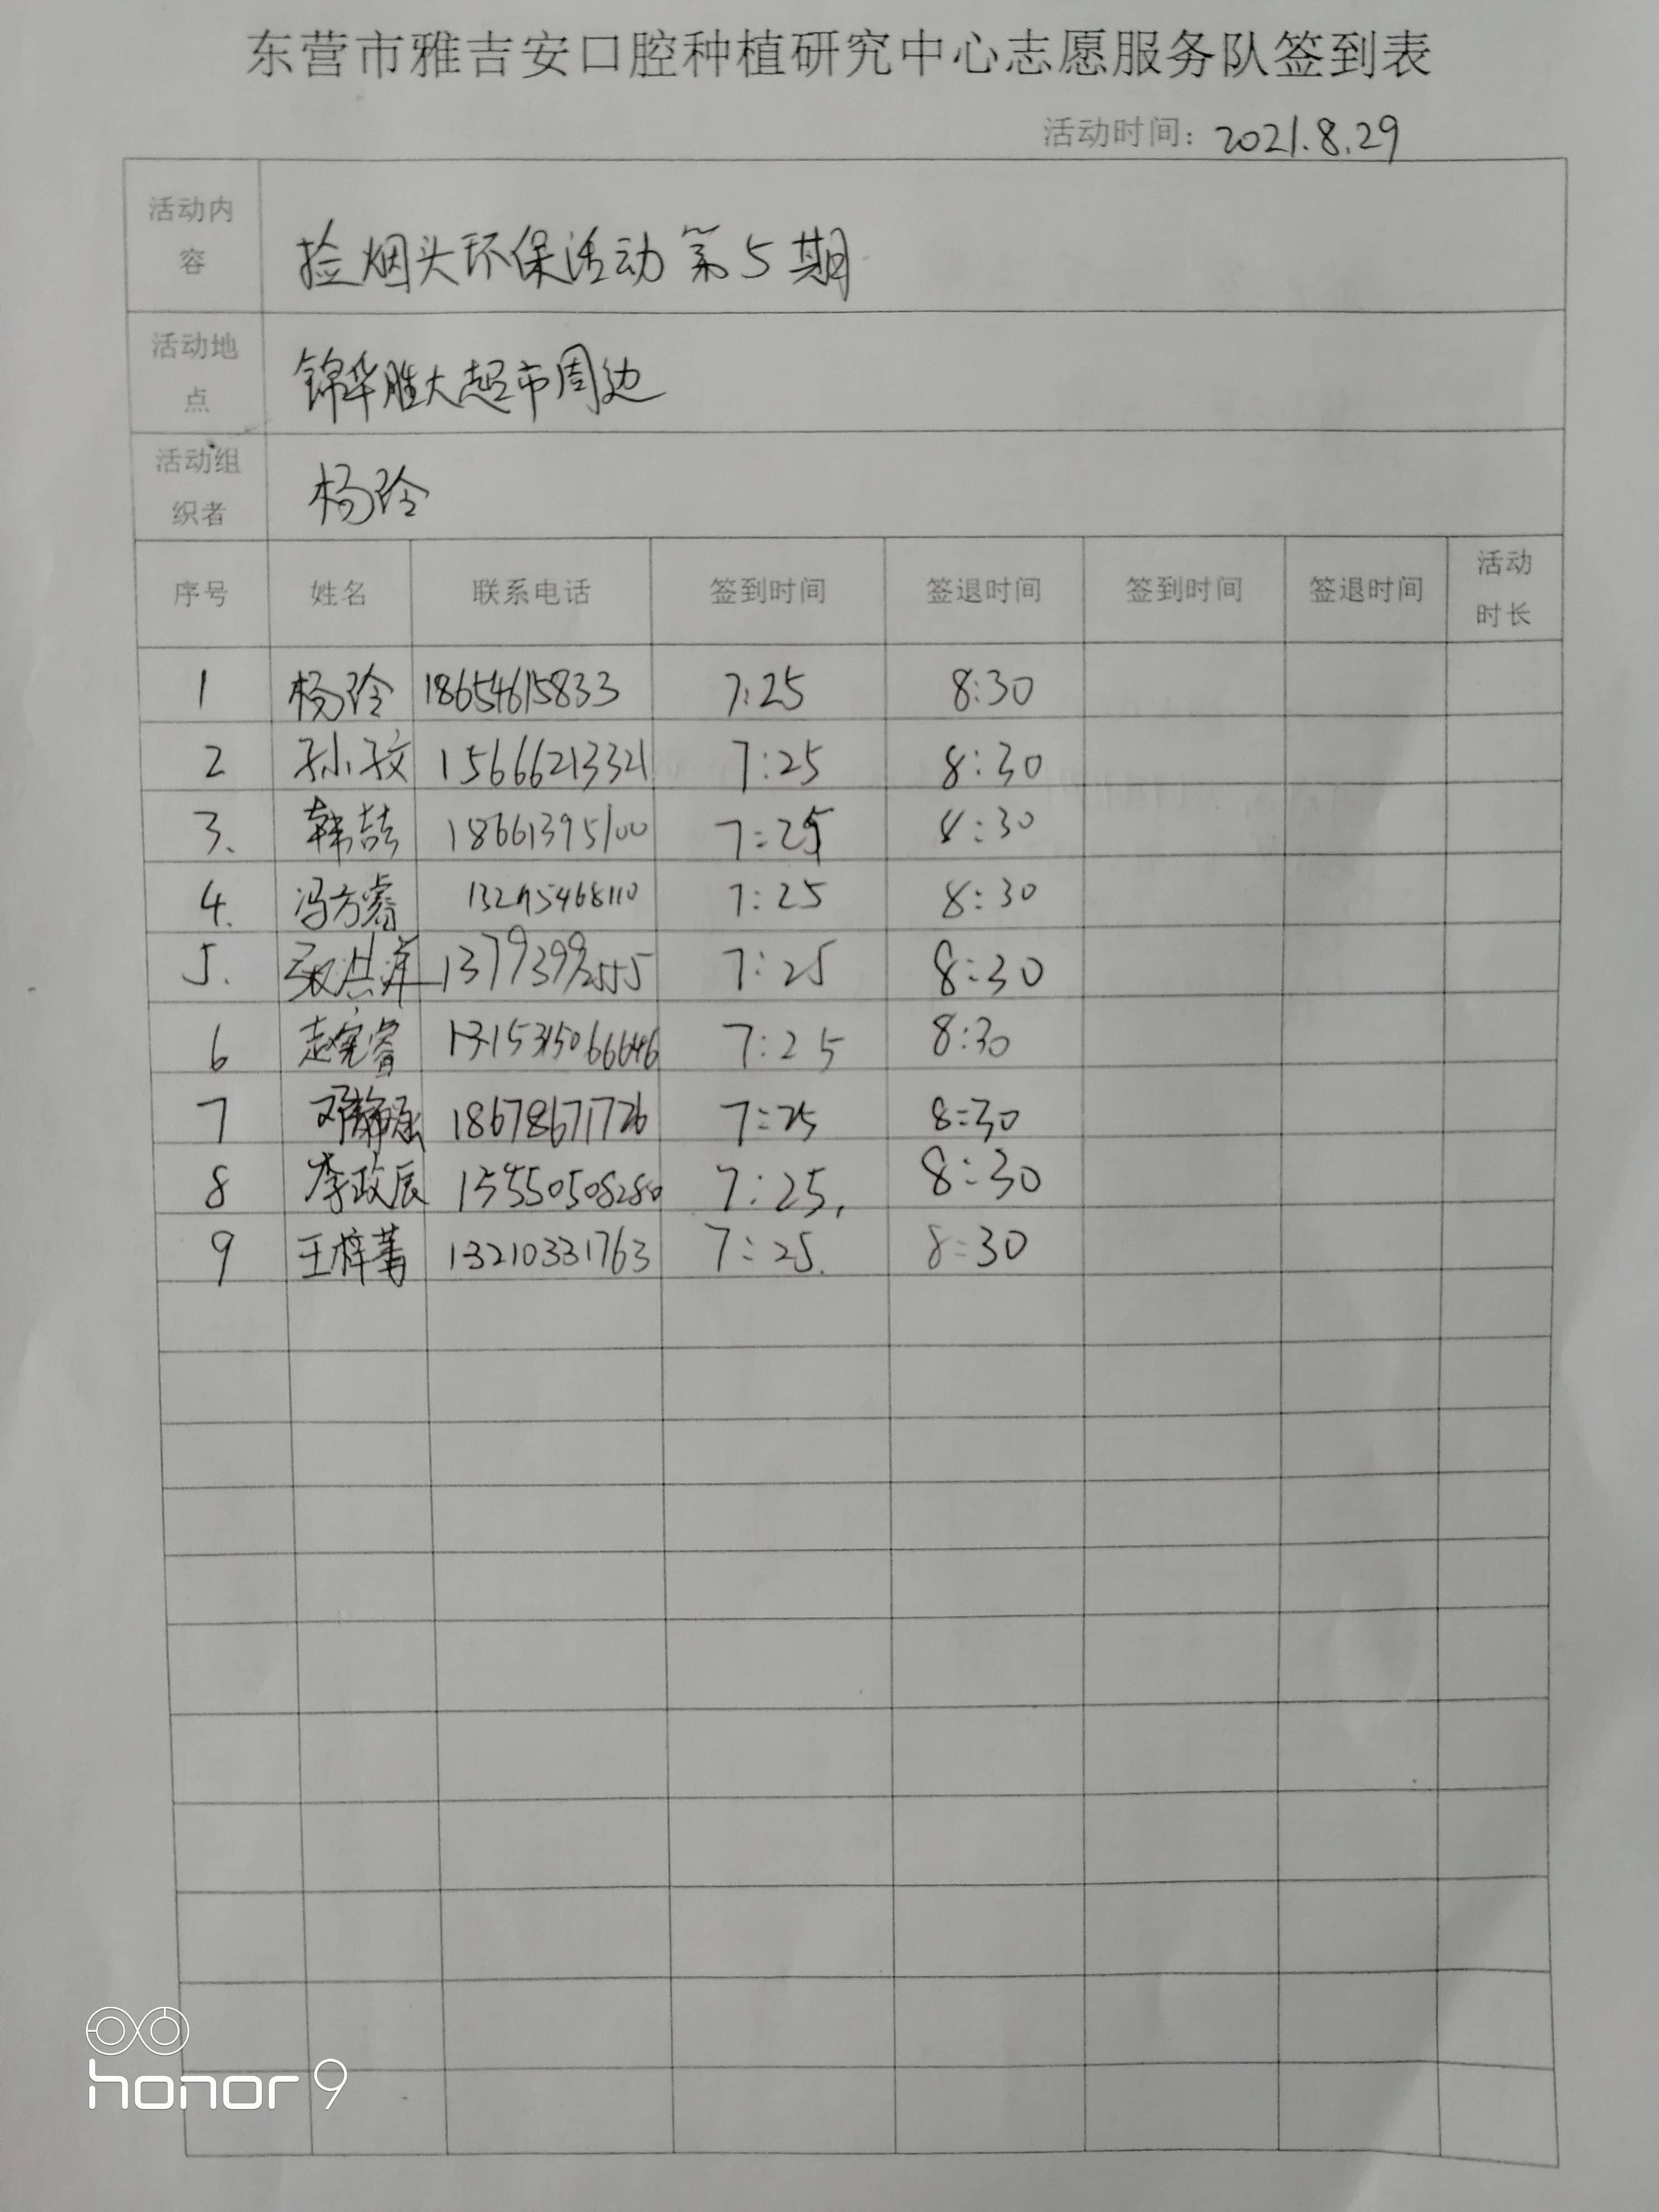 东营市雅吉安口腔种植研究中心志愿服务队签到表
活动时间：2021.8.29
活动内容 捡烟头环保活动第5期
活动地点 锦华胜大超市周边
活动组织者 杨玲
序号 姓名 联系电话 签到时间 签退时间 签到时间 签退时间 活动时长
1 杨玲 18654615833 7:25 8:30
2 孙文 15666213321 7:25 8:30
3、 韩喆 18661395100 7:25 8:30
4. 冯方睿 7:25 8:30
5. 13793992555 7:25 8:30
6 赵宪睿 7:25 8:30
7 邓静 18678671726 7:25 8:30
8 李政辰 7:25, 8:30
9 王梓菁 13210331763 7:25. 8:30
honor 9